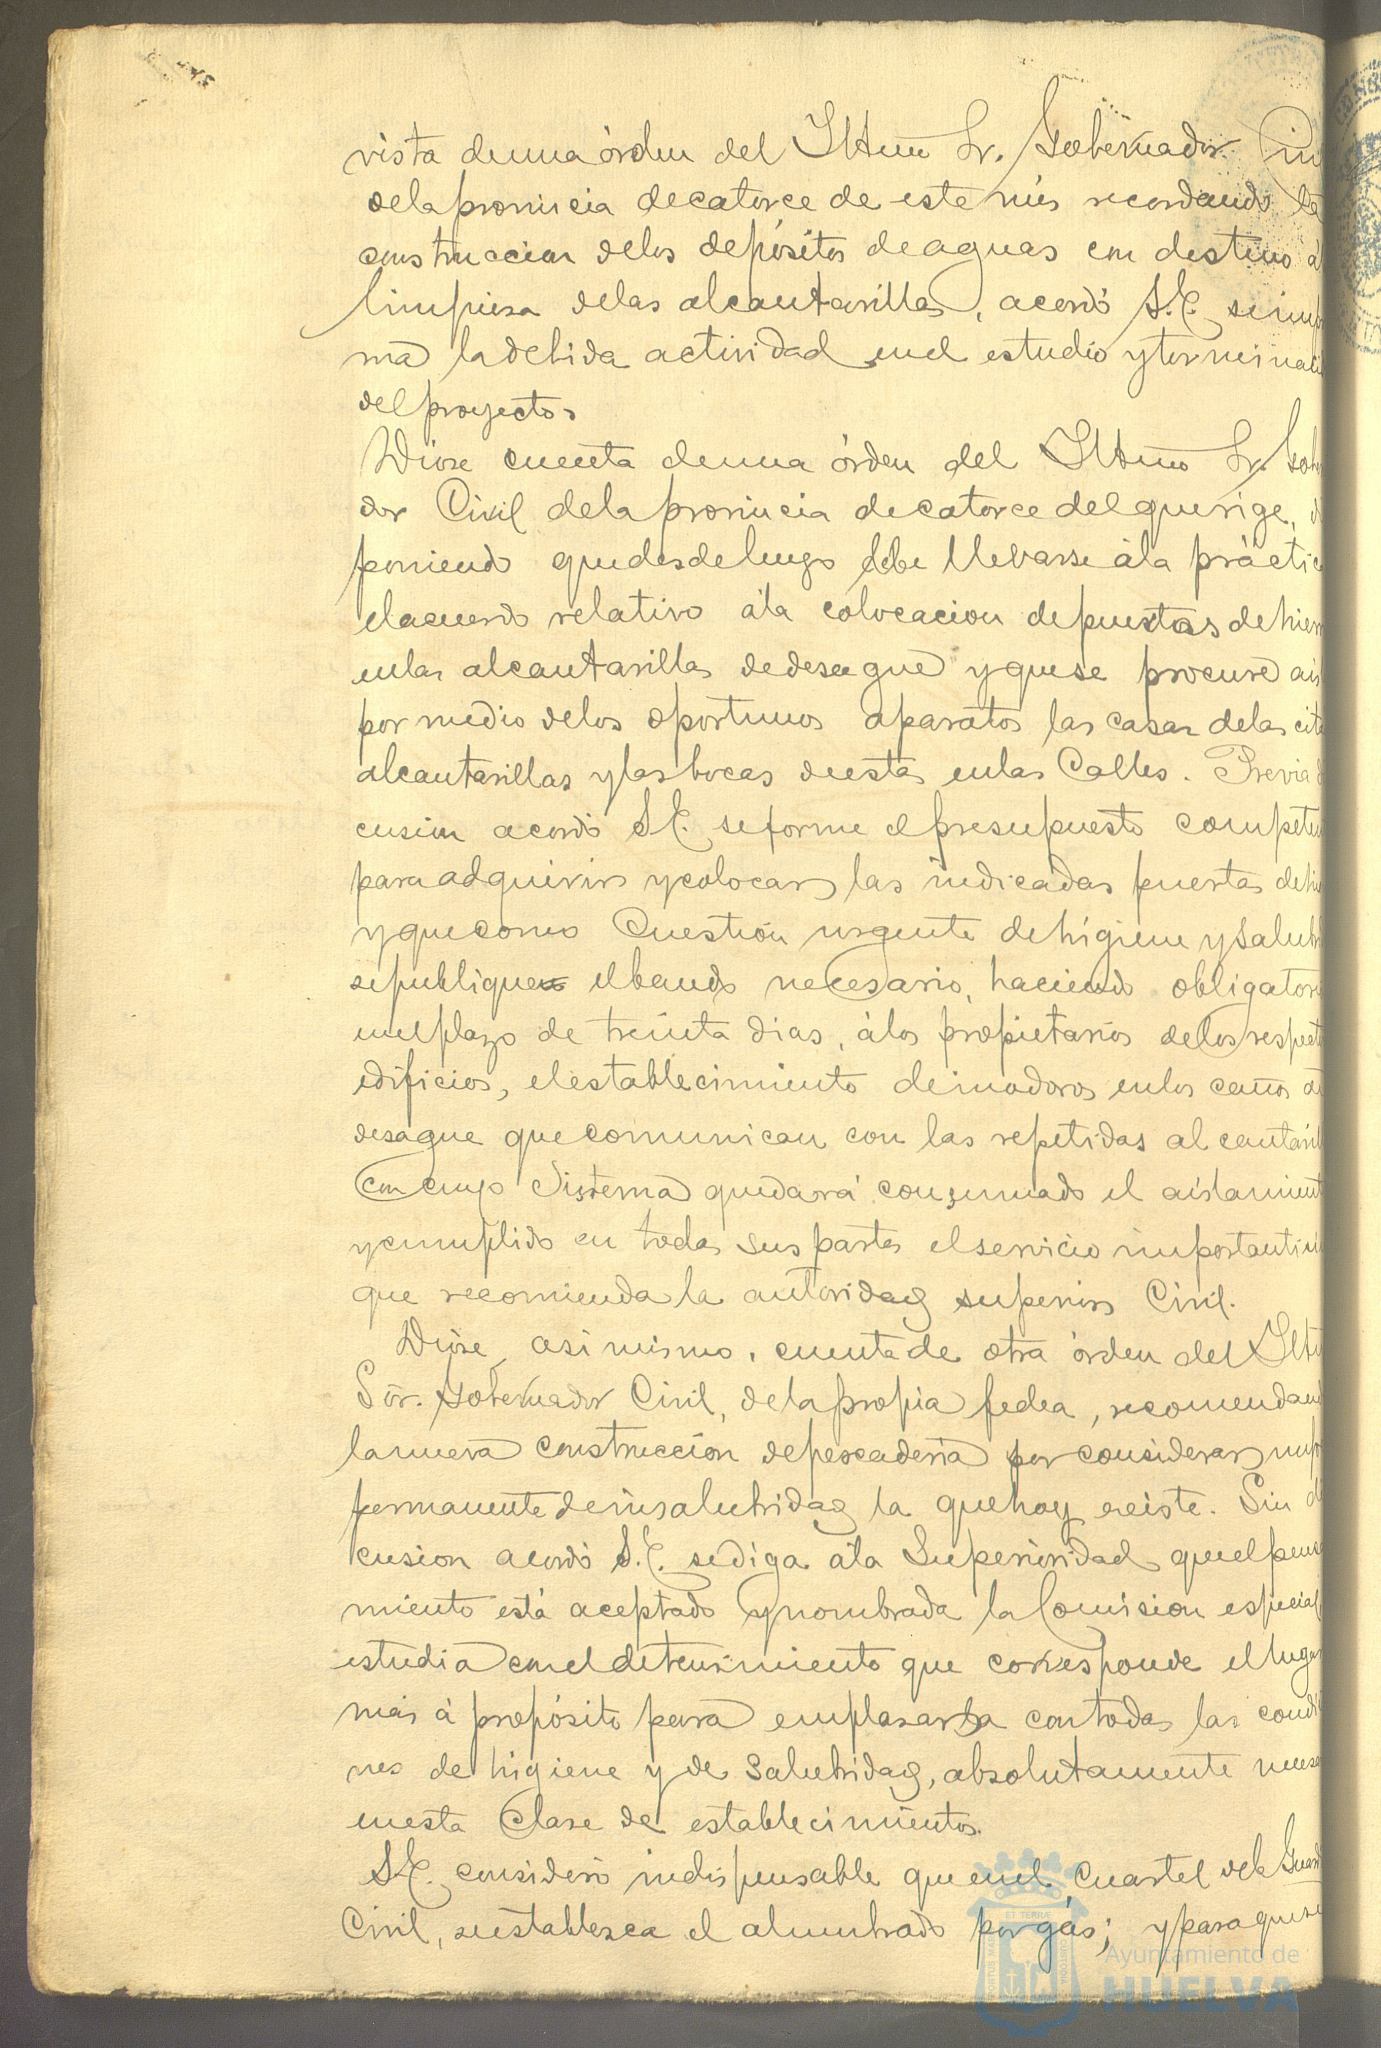 vista de una órden del Iltmo Sr. Gobernador
de la provincia de catorce de este mes recordando la
construccion de los depósitos de aguas con destino á
limpiesa de las alcantarillas, acordó S.E. se impri
ma la debida actividad en el estudio y terminaci
del proyecto.
Dióse cuenta de una órden del Iltmo Sr. Gober
dor Civil de la provincia de catorce del que rige, dis
poniendo que desde luego debe llevarse á la práctic
el acuerdo relativo á la colocacion de puertas de hierr
en las alcantarillas de desagüe y que se procure ais
por medio de los oportunos aparatos las casas de las cita
alcantarillas y las bocas de esta en las Calles. Previa dis
cusion acordó S.E. se forme el presupuesto competen
para adquirir y colocar las indicadas puertas de hie
y que como Cuestión urgente de higiene y salubri
se publique el bando necesario, haciendo obligatori
en el plazo de treinta dias, á los propietarios de los respecti
edificios, el establecimiento de inodoros en los caños de
desague que comunican con las repetidas alcantarill
con cuyo Sistema quedará consumado el aislamient
y cumplido en todas sus partes el servicio importantisi
que recomienda la autoridad superior Civil.
Dióse, asimismo, cuenta de otra órden del Iltm
Sör. Gobernador Civil, de la propia fecha, recomendand
la nueva construcción de pescadería por considerar
permanente de insalubridad la que hoy existe. Sin dis
cusion acordó S.E. se diga á la Superioridad que el pensa
miento está aceptado y nombrada la Comision especial
estudia con el detenimiento que corresponde el lugar
más á propósito para emplasarla con todas las condicio
nes de higiene y de salubridad, absolutamente necesa
en esta Clase de establecimientos.
S.E. consideró indispensable que en el Cuartel de la Guard
Civil, se establesca el alumbrado por gás; y para que se
Ayuntamiento de
HUELVA